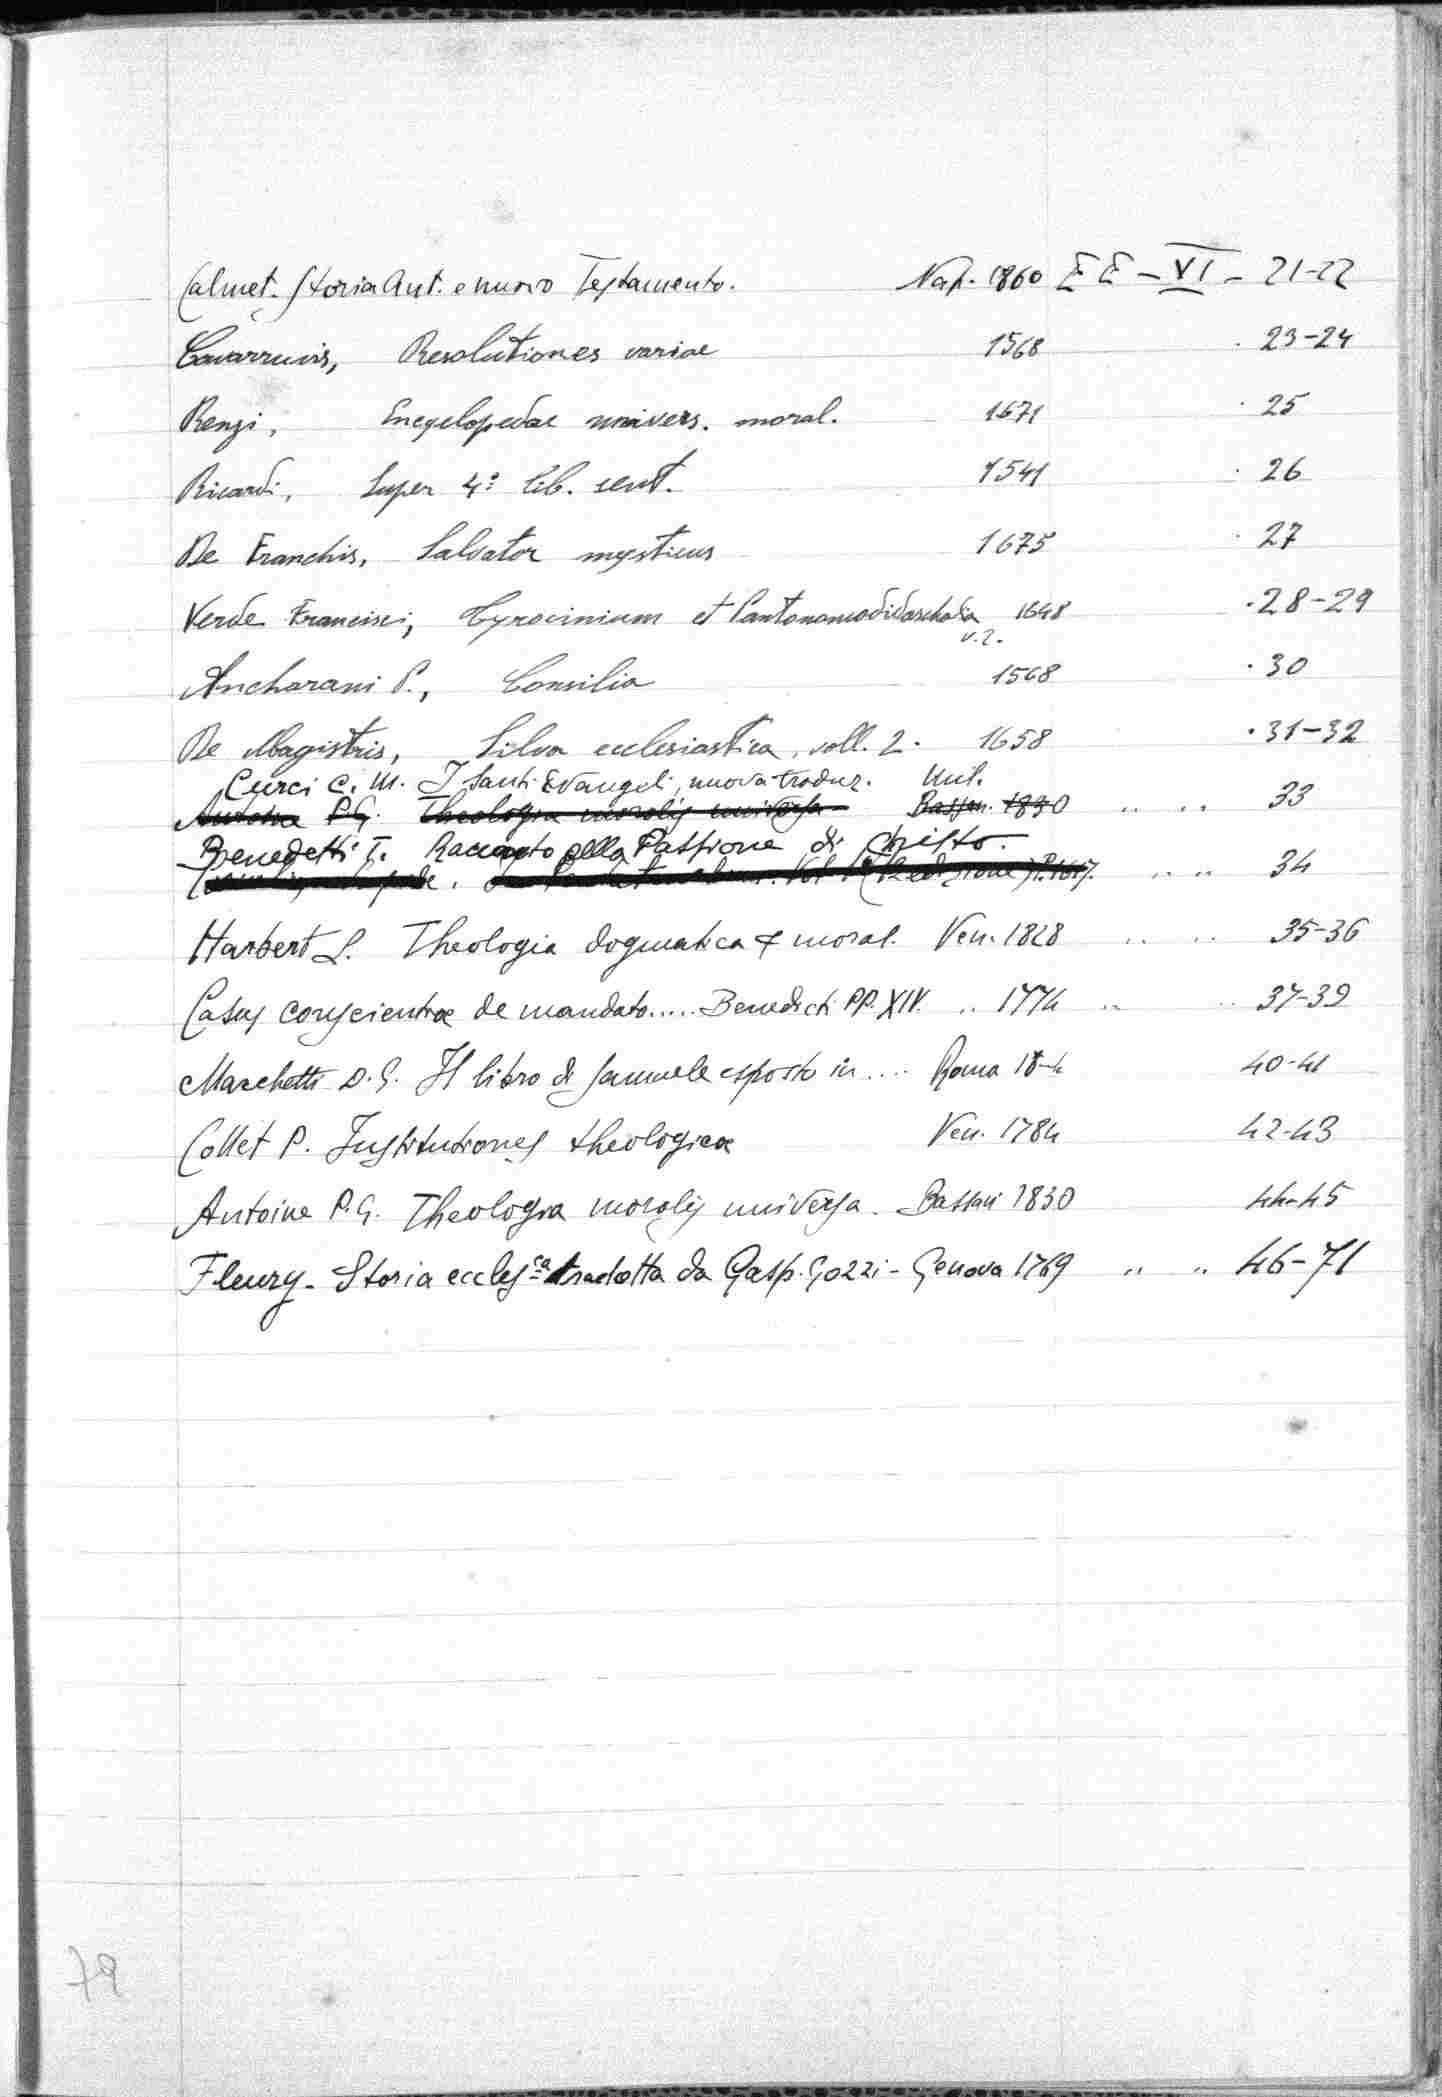 Calmet. Storia Ant. e nuovo Testamento. Nap. 1860 EE - VI - 21-22
Covarruvis, Resolutiones variae 1568 23-24
Renzi, Encyclopedae univers. moral. 1671 25
Ricardi, Super 4º lib. sent. 1541 26
De Franchis, Salvator mysticus 1675 27
Verde Francisci, Tyrocinium et Pantonomodidaschalia 1648 28-29
v. 2.
Ancharani P., Consilia 1568 30
De Magistris, Silva ecclesiastica, voll. 2. 1658 31-32
Curci C. M. I Santi Evangeli, nuova traduz. Mil.
Antoine P.G. Theologia moralis universa Bassan. 1830 " " 33
Benedetti T. Racconto della Passione di Christo.
(2ª edizione) P. 1617. " " 34
Harbert L. Theologia dogmatica & moral. Ven. 1828 " " 35-36
Casus conscientiae de mandato..... Benedicti PP. XIV. " 1774 " " 37-39
Marchetti D.G. Il libro di Samuele esposto in .... Roma 40-41
Collet P. Institutiones theologicae Ven. 1784 42-43
Antoine P.G. Theologia moralis universa. Bassan 1830 44-45
Fleury - Storia eccles.ca tradotta da Gasp. Gozzi - Genova 1769 " " 46-71
79